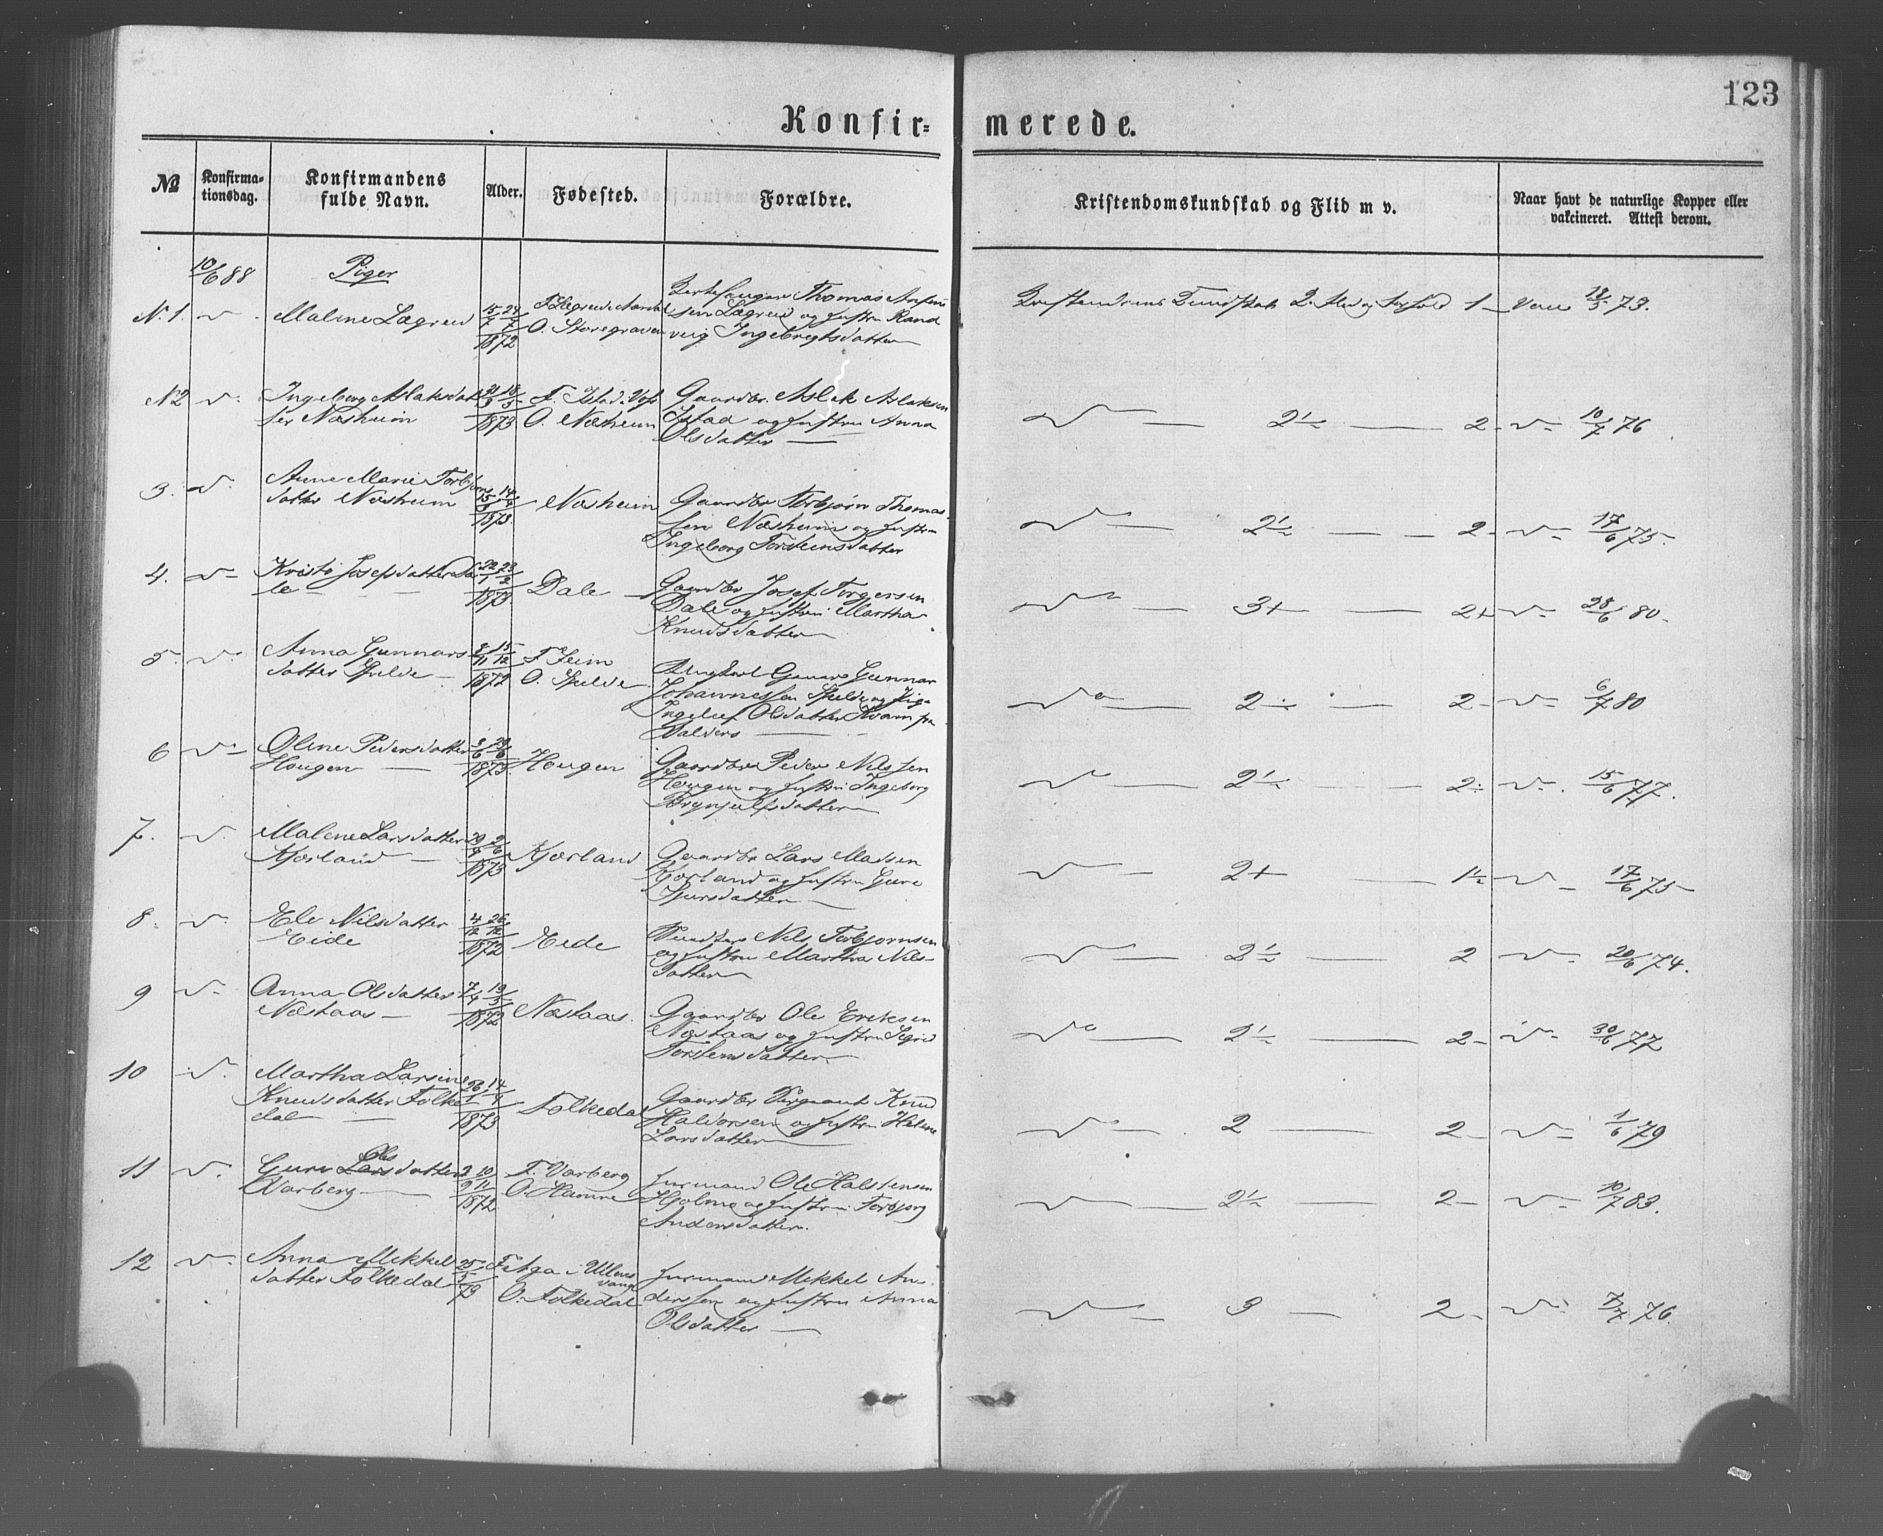 123
Konfir= merede.
№
Konfirma-
tionsdag.
Konfirmandens
fulde Navn.
Alder.
Fødested.
Forældre.
Kristendomskundskab og Flid m v.
Naar havt de naturlige Kopper eller
vakcineret. Attest derom.
10/6 88
Piger
N. 1. Malene Lægreid 15/7 1872
O. Storegraven
Thomas
sen Lægreid og Hustru Rand
veig Ingebregtsdatter
Kristendoms Kundskab 2. Flid og Forhold 1 - Vac 73.
N 2 Ingeborg Aslaksdat
ter Næsheim 1873
F. Istad, Voss
O. Næsheim
Gaardbr. Aslak Aslaksen
Istad og Hustru Anna
Olsdatter
2½ 2 10/7 76
3. Anne Marie Torbjørns
datter Næsheim 1873
Næsheim
Gaardbr Torbjørn Thomas
sen Næsheim og Hustru
Ingeborg Torsteinsdatter
2½ 2 17/6 75.
4. Josefsdatter Da
le 22/1 23/2 1873
Dale
Gaardbr Josef Torgersen
Dale og Hustru Martha
Knudsdatter
3+ 2+ 28/6 80.
5. Anna Gunnars
datter Spilde 15/12 1872
F. Seim
O. Spilde
Gunnar
Johannessen Spilde og Pige
Olsdatter Kvam fra
Valders
2 2 6/7 80
6 Oline Pedersdatter
Hougen 1873
Hougen
Gaardbr Peder Nilssen
Hougen og Hustru Ingeborg
Brynjulfsdatter
2½ 2 15/6 77.
7. Malene Larsdatter
Kjærland 1873
Kjærland
Gaardbr Lars Madsen
Kjærland og Hustru Guro
Sjursdatter
2+ 1½ 17/6 75
8. Eli Nilsdatter
Eide 4/12 26/12 1872
Eide
Nils Torbjørnsen
og Hustru Martha Nils-
datter
2½ 2 20/6 74.
9 Anna Olsdatter
Næstaas 7/4 19/5 1872
Næstaas.
Gaardbr Ole Eriksen
Næstaas og Hustru Sigrid
Torsteinsdatter
2½ 2 30/6 77
10 Martha Larsine
Knudsdatter Folke
dal 1873
Folkedal
Gaardbr Sergeant Knud
Haldorsen og Hustru Helene
Larsdatter
2 2 1/6 79
11 Guro Ols datter
Varberg 1872
F. Varberg
O. Hamre
Huusmand Ole Halsteinsen
Hjelmo og Hustru Torbjørg
Andersdatter.
2½ 2 10/7 83.
12 Anna Mikkels
datter Folkedal 25/5 73
F. Aga i Ullens
vang
O. Folkedal
Huusmand Mekkel An
dersen og Hustru Anna
Olsdatter
3 2 7/7 76.